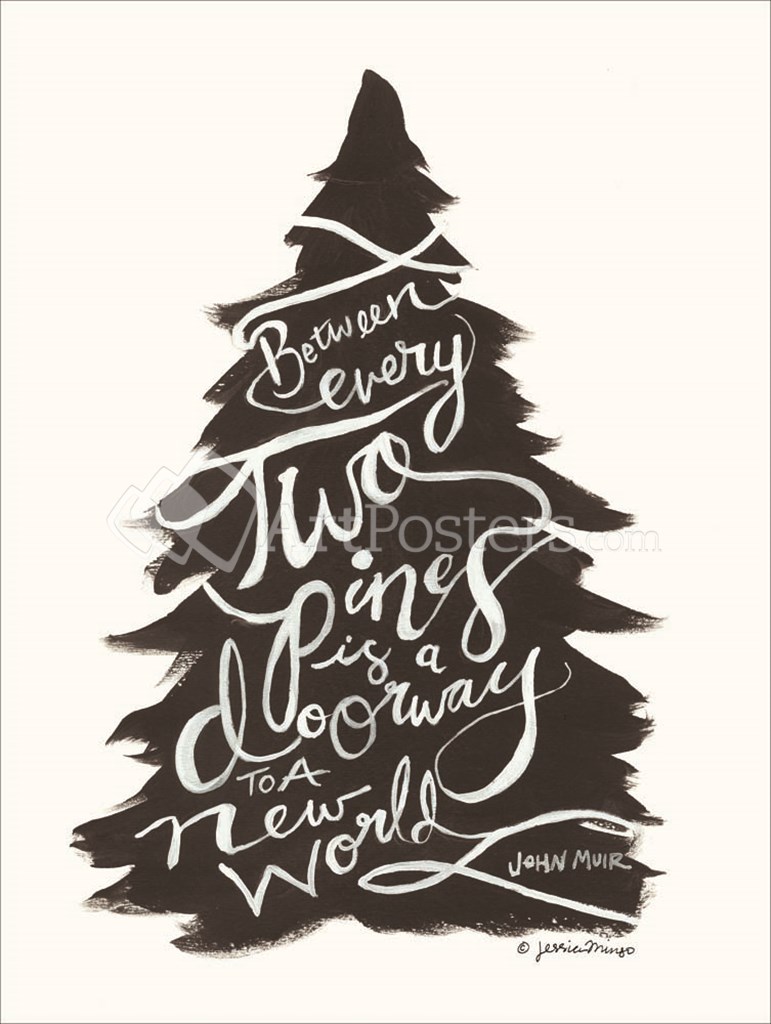 Between
every
Two
Pines
is a
doorway
TO A
new
World
JOHN MUIR
ArtPosters.com
© Jessica Mingo